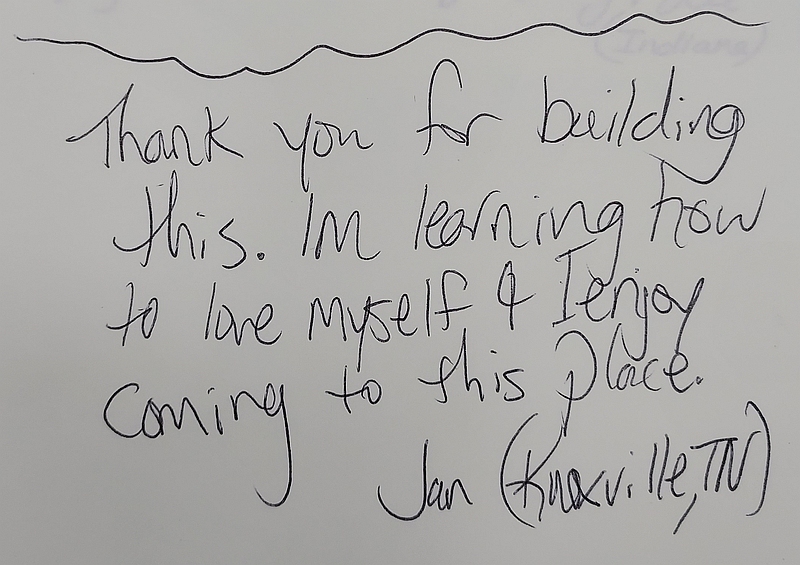 (Indiana)
Thank you for building
this. Im learning how
to love myself & I enjoy
coming to this place.
Jan (Knoxville, TN)